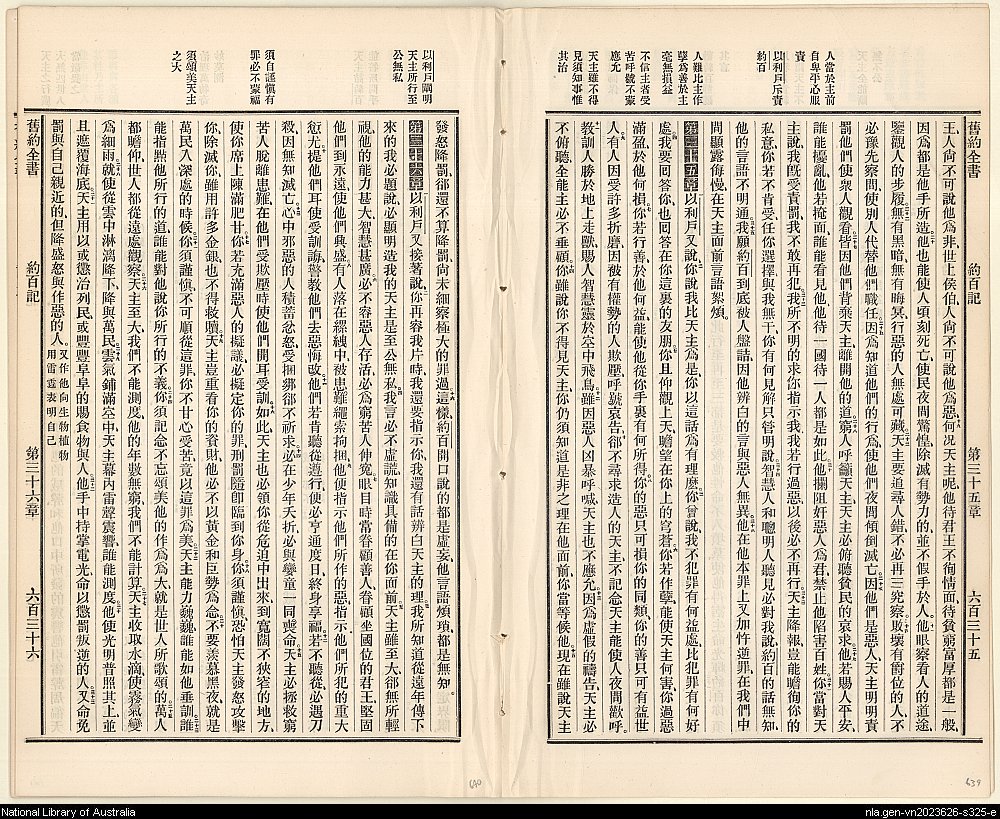 人當於主前
自卑平心服
責
以利戶斥責
約百
人難比主作
孽為善於主
毫無損益
不信主者受
苦呼號不蒙
應允
天主雖不得
見須知事惟
其治
舊約全書 約百記 第三十五章 六百三十五
王、人尚不可說他為非、世上侯伯、人尚不可說他為惡、何況天主呢、他待君王不徇情面、待貧窮富厚都是一般、
因為都是他手所造、他也能使人頃刻死亡、使民夜間驚惶、除滅有勢力的、並不假手於人、他眼察看人的道途、
鑒觀人的步履、無有黑暗、無有晦冥、行惡的人無處可藏、天主要追尋人錯、不必再三究察、敗壞有爵位的人、不
必豫先察問、使別人代替他們職任、因為知道他們的行為、使他們夜間傾倒滅亡、因他們是惡人、天主明明責
罰他們、使眾人觀看、皆因他們背棄天主、離開他的道、窮人呼籲天主、天主必俯聽貧民的哀求、他若賜人平安、
誰能擾亂、他若掩面、誰能看見他、他待一國待一人、都是如此、他攔阻奸惡人為君、禁止他陷害百姓、你當對天
主說、我旣受責罰、我不敢再犯、我所不明的、求你指示我、我若行過惡、以後必不再行、天主降報、豈能瞻徇你的
私意、你若不肯受、任你選擇、與我無干、你有何見解、只管明說、智慧人和聰明人聽見、必對我說、約百的話無知、
他的言語不明通、我願約百到底被人盤詰、因他辨白的言與惡人無異、他在他本罪上又加忤逆罪、在我們中
間顯露侮慢、在天主面前言語絮煩、
第三十五章 以利戶又說、你說我比天主為是、你以這話為有理麼、你曾說、我不犯罪有何益處、比犯罪有何好
處、我要回答你、也回答在你這裏的友朋、你且仰觀上天、瞻望在你上的穹蒼、你若作孽、能使天主何害、你過惡
滿盈、於他何損、你若行善、於他何益、能使他從你手裏有何所得、你的惡只可損你的同類、你的善只可有益世
人、有人因受許多折磨、因被有權勢的人欺壓、呼號哀告、卻不尋求造人的天主、不記念天主能使人夜間歡呼、
教訓人勝於地上走獸、賜人智慧靈於空中飛鳥、雖因惡人凶暴、呼喊天主、也不應允、因為虛假的禱告、天主必
不俯聽、全能主必不垂顧、你雖說你不得見天主、你仍須知道是非之理在他面前、你當等候他、現在雖說天主
以利戶闡明
天主所行至
公無私
須自謹慎有
罪必不蒙福
須頌美天主
之大
發怒降罰、卻還不算降罰、尚未細察極大的罪過、這樣、約百開口說的都是虛妄、他言語煩瑣、都是無知。
第三十六章 以利戶又接著說、你再容我片時、我還要指示你、我還有話辨白天主的理、我所知道從遠年傳下
來的我必題說、必顯明造我的天主是至公無私、我言必不虛謊、知識具備的在你面前、天主雖至大、卻無所輕
視、他的能力甚大、智慧甚廣、必不容惡人存活、必為窮苦人伸寃、眼目時常眷顧善人、眷顧坐國位的君王、堅固
他們到永遠、使他們興盛、有人落在縲絏中、被患難繩索拘捆、他便指示他們所作的惡、指示他們所犯的重大
愆尤、提他們耳使受訓誨、警教他們去惡悔改、他們若肯聽從遵行、便必亨通度日、終身享福、若不聽從、必遇刀
殺、因無知滅亡、心中邪惡的人積蓄忿怒、受捆綁卻不祈求、必在少年夭折、必與孌童一同喪命、天主必拯救窮
苦人脫離患難、在他們受欺壓時、使他們開耳受訓、如此、天主也必領你從危迫中出來、到寬闊不狹窄的地方、
使你席上陳滿肥甘、你若充滿惡人的擬議、必擬定你的罪、刑罰隨卽臨到你身、你須謹慎、恐怕天主發怒攻擊
你、除滅你、雖用許多金銀、也不得救贖、天主豈重看你的資財、他必不以黃金和巨勢為念、不要羨慕黑夜、就是
萬民入深處的時候、你須謹慎、不可順從這罪、你不甘心受苦、竟以這罪為美、天主能力巍巍、誰能如他垂訓、誰
能指點他所行的道、誰能對他說、你所行的不義、你須記念不忘頌美他的作為、為大、就是世人所歌頌的、萬人
都瞻仰、世人都從遠處觀察、天主至大、我們不能測度、他的年數無窮、我們不能計算、天主收取水滴、使霧氣變
為細雨、就使從雲中淋漓降下、降與萬民、雲氣鋪滿空中、天主幕內雷聲震響、誰能測度、他使光明普照其上、並
且遮覆海底、天主用以或懲治列民、或豐豐阜阜的賜食物與人、他手中持掌電光、命以懲罰叛逆的人、又命免
罰與自己親近的、但降盛怒與作惡的人。又作他向生物植物用雷霆表明自己
舊約全書 約百記 第三十六章 六百三十六
640
639
National Library of Australia
nla.gen-vn2023626-s325-e